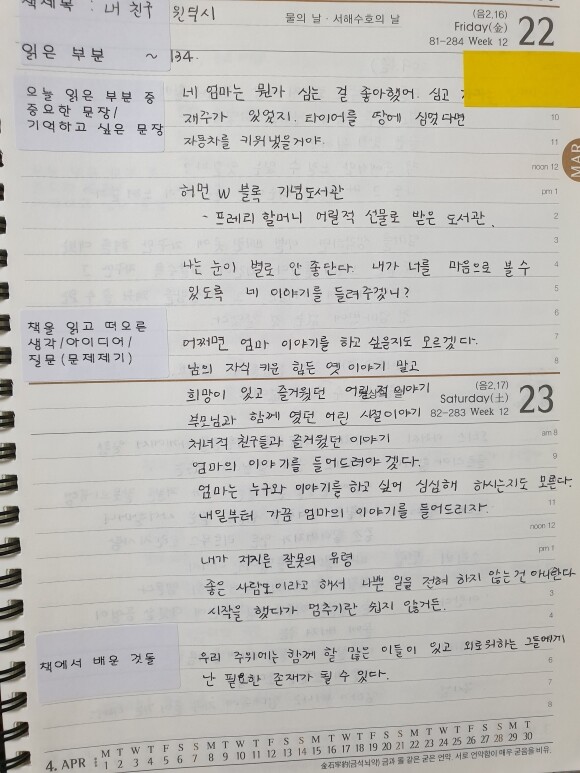 책제목 : 내 친구 윈딕시
물의 날 · 서해수호의 날
(음2.16)
Friday(金)
81-284 Week 12
22
읽은 부분 ~ 134.
오늘 읽은 부분 중
중요한 문장/
기억하고 싶은 문장
네 엄마는 뭔가 심는 걸 좋아했어. 심고
재주가 있었지. 타이어를 땅에 심었다면
10
자동차를 키워냈을거야.
11
MAR
noon 12
허먼 W 블록 기념도서관
pm 1
- 프래니 할머니 어릴적 선물로 받은 도서관.
2
3
나는 눈이 별로 안 좋단다. 내가 너를 마음으로 볼 수
4
있도록 네 이야기를 들려주겠니?
5
6
책을 읽고 떠오른
생각/아이디어/
질문(문제제기)
어쩌면 엄마 이야기를 하고 싶은지도 모르겠다.
7
남의 자식 키운 힘든 옛 이야기 말고
8
희망이 있고 즐거웠던 어릴적 이야기
(음2.17)
부모님과 함께 였던 어린 시절이야기
Saturday(土)
82-283 Week 12
23
처녀적 친구들과 즐거웠던 이야기
am 8
엄마의 이야기를 들어드려야겠다.
9
엄마는 누구와 이야기를 하고 싶어 심심해 하시는지도 모른다.
내일부터 가끔 엄마의 이야기를 들어드리자.
11
noon 12
내가 저지른 잘못의 유령
pm 1
좋은 사람이라고 해서 나쁜 일을 전혀 하지 않는건 아니란다
시작을 했다가 멈추기란 쉽지 않거든.
3
4
책에서 배운 것들
우리 주위에는 함께 할 많은 이들이 있고 외로워하는 그들에게
난 필요한 존재가 될 수 있다.
6
7
8
4. APR
M T W T F S S M T W T F S S M T W T F S S M T W T F S S M T
1 2 3 4 5 6 7 8 9 10 11 12 13 14 15 16 17 18 19 20 21 22 23 24 25 26 27 28 29 30
금과 돌 같은 굳은 언약. 서로 언약함이 매우 굳음을 비유.